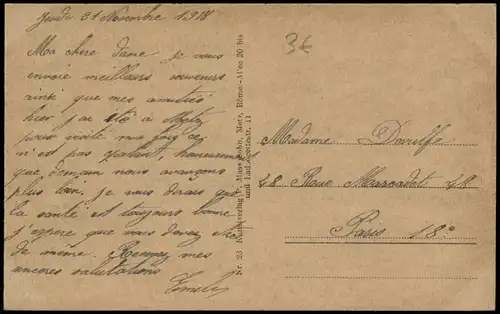 Jeudi 21 Novembre 1918
3€
Ma chere dame je vous
envoie meilleurs souvenirs
ainsi que mes amitiés
hier j'ai été à Metz
pour visité ma foi ce
n'est pas galant, heureusement
que demain nous avançons
plus loin, je vous dirais que
la santé est toujours bonne
j'espere que vous devez être
de même. Recevez mes
encores salutations
Nr. 23 Kunstverlag Hasso John, Metz, Römer-Allee 20 bis
und
Madame
48 Rue Marcadet 48
Paris 18e